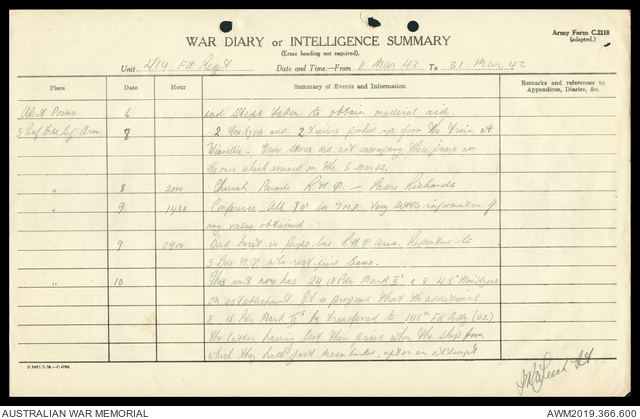 Army Form C.2118
(adapted.)
WAR DIARY or INTELLIGENCE SUMMARY
(Erase heading not required).
Unit 2/14 Fd Regt Date and Time—From 1 Mar 42 To 31 Mar 42
Place Date Hour Summary of Events and Information Remarks and references to Appendices, Diaries, &c.
Alert Posns 6 and steps taken to obtain medical aid.
8 2 and 2 picked up from the train at
Winnellie. stores did not accompany these guns nor
which arrived on the 5 Mar 42.
" 8 2000 Church Parade R.H.Q. — Padre Richards
" 9 1430 Conference All in Very little information of
any value obtained
9 0900 Bad burst in pipe line R.H.Q. Area. Reported to
" 10 This unit now has 24 18 Pdr Mark II's & 8 4.5" Howitzers
on establishment. It is proposed that the additional
8 18 Pdr Mark II's be transferred to 148th Fd Arty (U.S.)
the latter having lost their guns when the ship from
which they had just disembarked, after an attempt
D.3481/3.38.—C.4768.
AUSTRALIAN WAR MEMORIAL
AWM2019.366.600